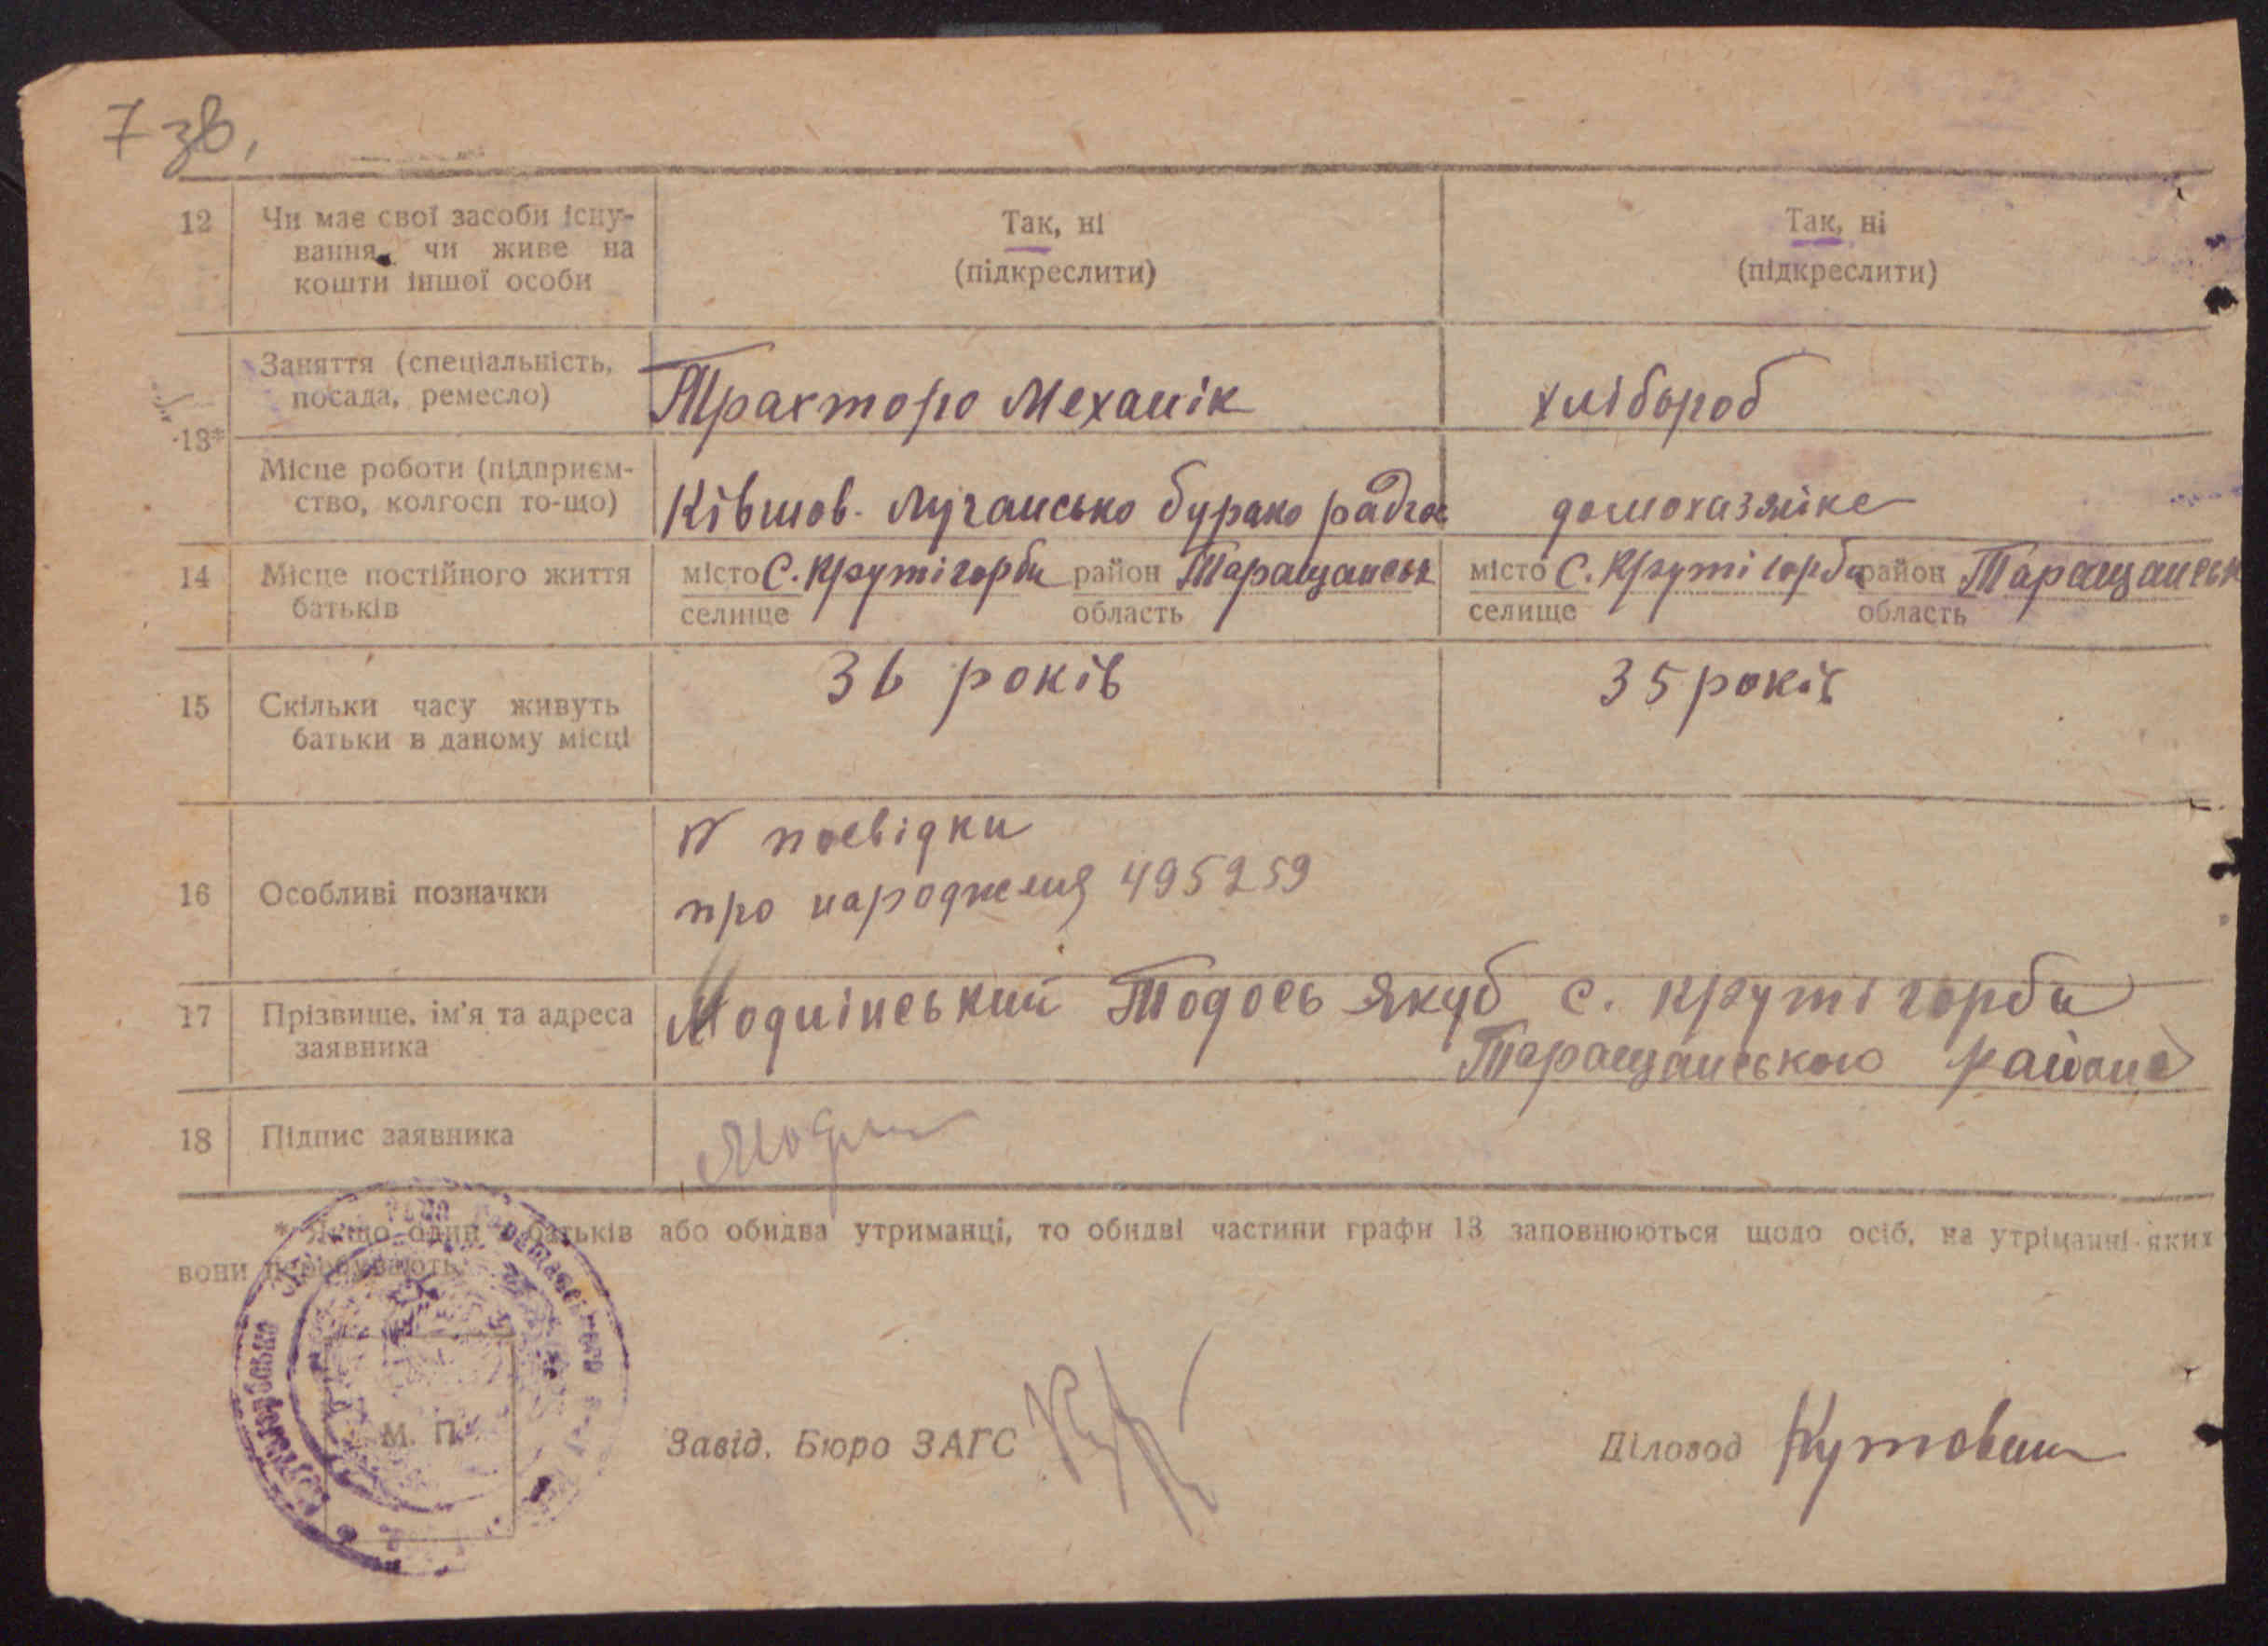 7 зв,
12 Чи має свої засоби існу- Так, ні Так, ні
вання, чи живе на (підкреслити) (підкреслити)
кошти іншої особи
Заняття (спеціальність,
посада, ремесло) Тракторо Механік хлібороб
13*
Місце роботи (підприєм-
ство, колгосп то-що) Ківшов. Лучансько бурако радгос домохазяйке
14 Місце постійного життя місто С. Крутігорби район Таращанськ місто С. Круті горби район Таращанськ
батьків селище область селище область
36 років 35 років
15 Скільки часу живуть
батьки в даному місці
N посвідки
16 Особливі позначки про народження 495259
17 Прізвище, ім'я та адреса Моднінський Тодось Якуб с. Круті горби
заявника Таращанського района
18 Підпис заявника
* Якщо один з батьків або обидва утриманці, то обидві частини графи 13 заповнюються щодо осіб, на утріманні яких
вони перебувають.
М. П.
Завід. Бюро ЗАГС Діловод Кутовий